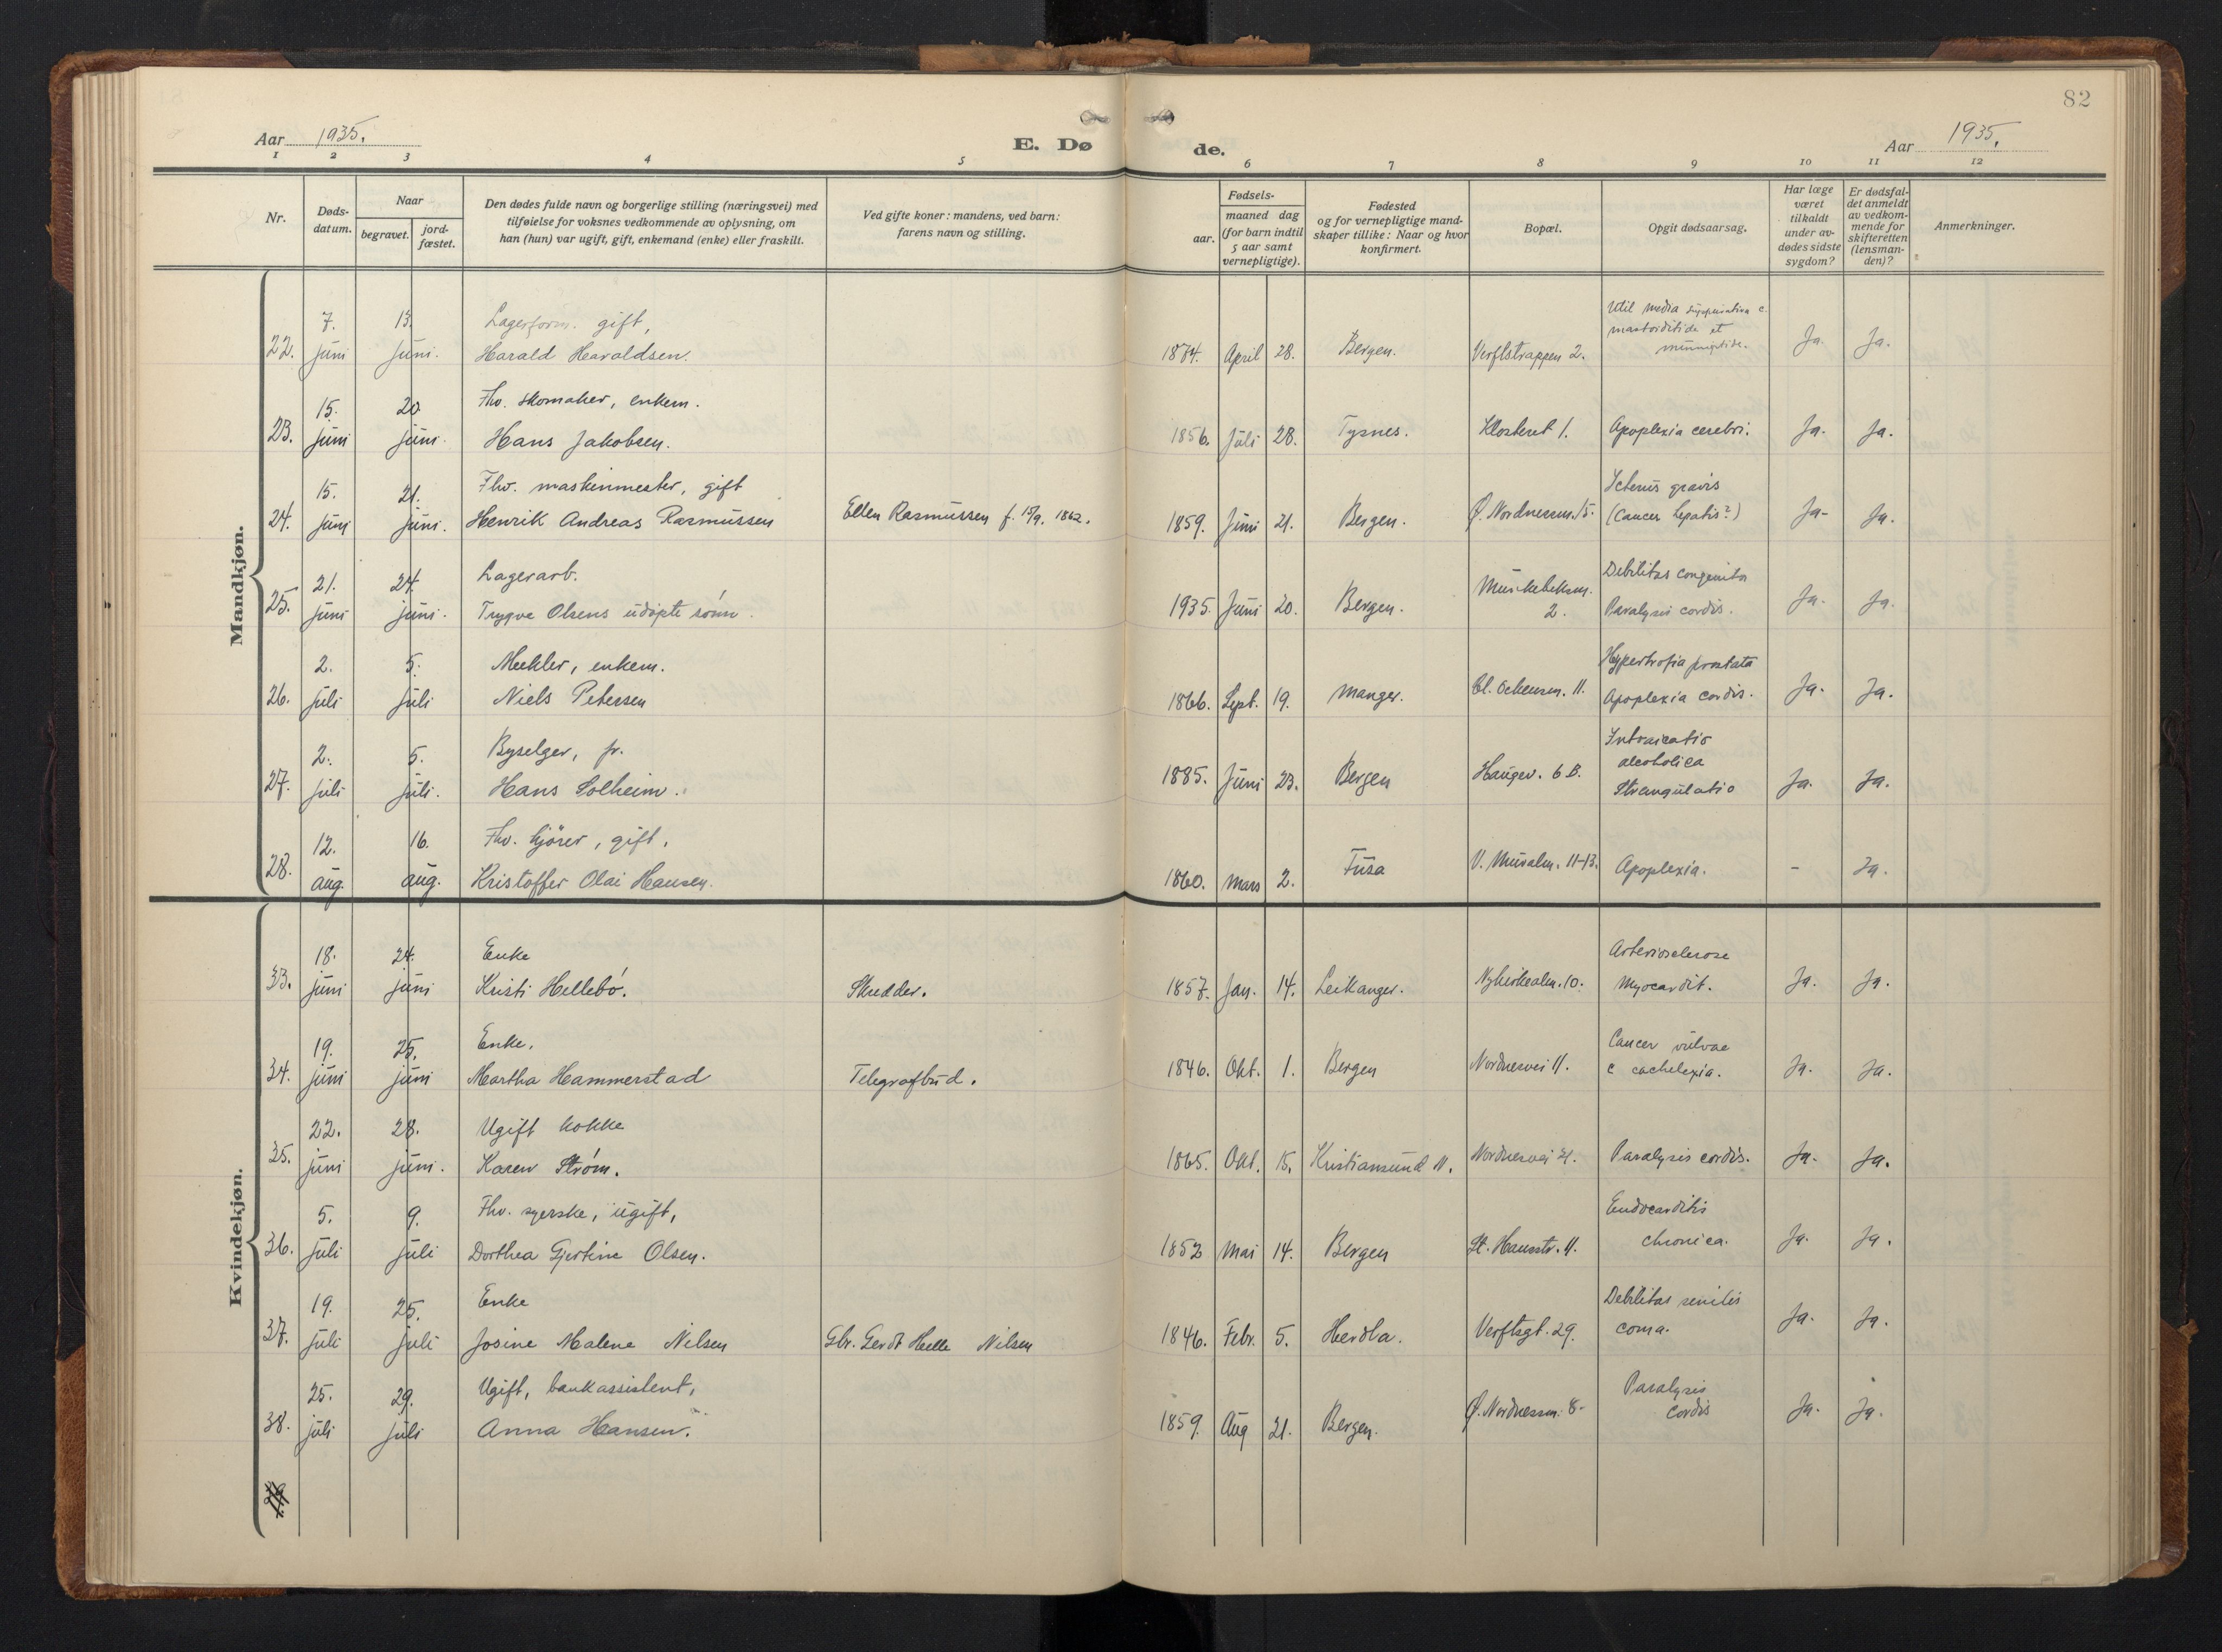 82
Aar 1935.
E. Dø de.
Aar 1935.
1 2 3 4 5 6 7 8 9 10 11 12
Nr.
Døds-
datum.
Naar
begravet.
jord-
fæstet.
Den dødes fulde navn og borgerlige stilling (næringsvei) med
tilføielse for voksnes vedkommende av oplysning, om
han (hun) var ugift, gift, enkemand (enke) eller fraskilt.
Ved gifte koner: mandens, ved barn:
farens navn og stilling.
Fødsels-
aar.
maaned dag
(for barn indtil
5 aar samt
vernepligtige).
Fødested
og for vernepligtige mand-
skaper tillike: Naar og hvor
konfirmert.
Bopæl.
Opgit dødsaarsag.
Har læge
været
tilkaldt
under av-
dødes sidste
sygdom?
Er dødsfal-
det anmeldt
av vedkom-
mende for
skifteretten
(lensman-
den)?
Anmerkninger.
Mandkjøn.
7. 13. Lagerform. gift, media suppurativa c.
mastoiditide et
22. juni juni. Harald Haraldsen. 1874. April 28. Bergen. Verftstrappen 2. Ja. Ja.
15. 20. Fhv. skomaker, enkem.
23. juni juni. Hans Jakobsen. 1856. Juli 28. Tysnes. Klosteret 1. Apoplexia cerebri. Ja. Ja.
15. 21. Fhv. maskinmester, gift Icterus gravis
24. juni juni. Henrik Andreas Rasmussen Ellen Rasmussen f. 15/9. 1862. 1859. Juni 21. Bergen. Ø. Nordnessm. 15. (Cancer hepatis?) Ja- Ja.
21. 24. Lagerarb. Debilitas congenita
25. juni juni. Trygve Olsens udøpte sønn. 1935. Juni 20. Bergen. 2. Paralysis cordis. Ja. Ja.
2. 5. Mekler, enkem. Hypertrofia prostata
26. juli juli Niels Petersen 1866. Sept. 19. Manger. 11. Apoplexia cordis. Ja. Ja.
2. 5. Byselger, fr. Intoxicatio
alcoholica
27. juli juli. Hans Solheim. 1885. Juni 23. Bergen Haugev. 6 B. Strangulatio Ja. Ja.
12. 16. Fhv. kjører, gift.
28. aug. aug. Kristoffer Olai Hansen. 1860. Mars 2. Fusa V. Muralm. 11-13. Apoplexia. - Ja.
Kvindekjøn.
18. 24. Enke Arteriosclerose
33. juni juni Kristi Hellebø. Skredder. 1857. Jan. 14. Leikanger. Nykirkealm. 10. Myocardit. Ja. Ja.
19. 25. Enke. Cancer vulvae
34. juni juni Martha Hammerstad Telegrafbud. 1846. Okt. 1. Bergen Nordnesvei 11. c cachelexia. Ja. Ja.
22. 28. Ugift kokke
35. juni juni. Karen Strøm. 1865. Okt. 15. Kristiansund N. Nordnesvei 21. Paralysis cordis. Ja. Ja.
5. 9. Fhv. syerske, ugift, Endocarditis
36. juli juli Dorthea Gjertine Olsen. 1852 Mai 14. Bergen St. Hansstr. 11. chronica. Ja. Ja.
19. 25. Enke Debilitas senilis
37. juli juli Josine Malene Nilsen Gbr. Gerdt Helle Nilsen 1846. Febr. 5. Herdla. Verftsgt. 29. coma. Ja. Ja.
25. 29. Ugift, bankassistent, Paralysis
38. juli juli Anna Hansen. 1859. Aug 21. Bergen. Ø. Nordnessm. 8- cordis Ja. Ja.